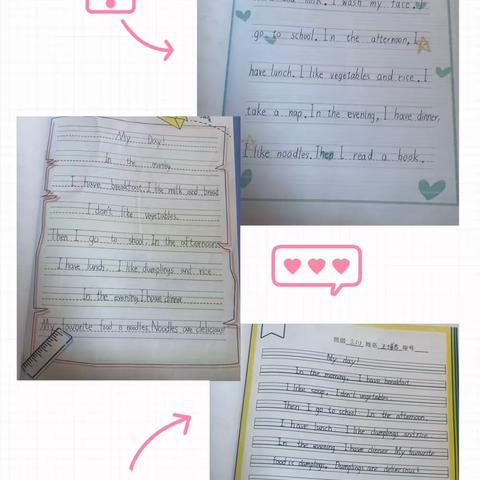 milk. I wash my face.
go to school. In the afternoon, I
have lunch. I like vegetables and rice. I
take a nap. In the evening, I have dinner,
I like noodles. Then I read a book.
My Day!
In the morning
I have breakfast. I like milk and bread
I don't like vegetables.
Then I go to shool. In the afternoon
I have lunch. I like dumplings and rice.
In the evening I have dinner
My favourite food is noodles. Noodles are delicious!
班级 姓名 座号
My day!
In the morning, I have breakfast.
I like soup, I don't vegetables.
Then I go to school. In the afternoon,
I have lunch. I like dumplings and rice.
In the evening I have dinner. My favourite
food is dumplings. Dumplings are